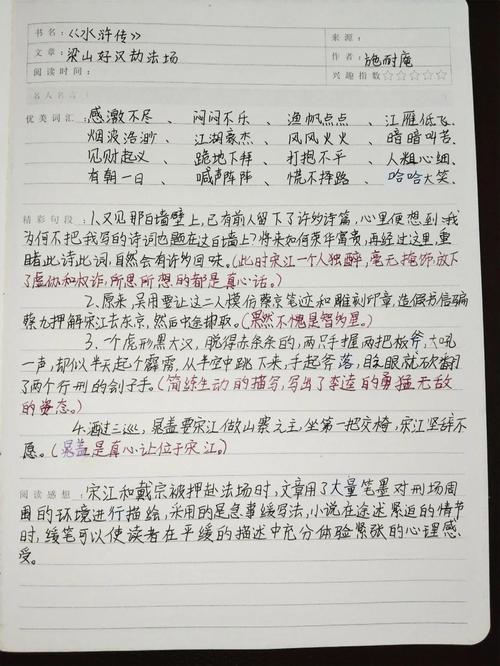 书名：《水浒传》 来源：
文章：梁山好汉劫法场 作者：施耐庵
阅读时间： 兴趣指数☆☆☆☆☆
名人名言：
优美词汇：感激不尽、闷闷不乐、渔帆点点、江雁低飞、
烟波浩渺、江湖豪杰、风风火火、暗暗叫苦、
见财起义、跪地下拜、打抱不平、人粗心细、
有朝一日、喊声阵阵、慌不择路、哈哈大笑。
精彩句段：1.又见那白墙壁上,已有前人留下了许多诗篇,心里便想到:我
为何不把我写的诗词也题在这白墙上?将来如何荣华富贵,再经过这里,重
睹此诗此词,自然会有许多回味。(此时宋江一个人独醉,毫无掩饰,放下
了虚伪和权诈,所思所想的都是真心话。)
2.原来,吴用要让这二人模仿蔡京笔迹和雕刻印章,造假书信骗
蔡九押解宋江去东京,然后中途掳取。(果然不愧是智多星。)
3.一个虎形黑大汉,脱得赤条条的,两只手握两把板斧,大吼
一声,却似半天起个霹雳,从半空中跳下来,手起斧落,眨眼就砍翻
了两个行刑的刽子手。(简练生动的描写,写出了李逵的勇猛无敌
的姿态。)
4.酒过三巡,晁盖要宋江做山寨之主,坐第一把交椅,宋江坚辞不
愿。(晁盖是真心让位于宋江。)
阅读感想：宋江和戴宗被押赴法场时,文章用了大量笔墨对刑场周
围的环境进行描绘,采用的是急事缓写法,小说在途述紧迫的情节
时,缓笔可以使读者在平缓的描述中充分体验紧张的心理感
受。